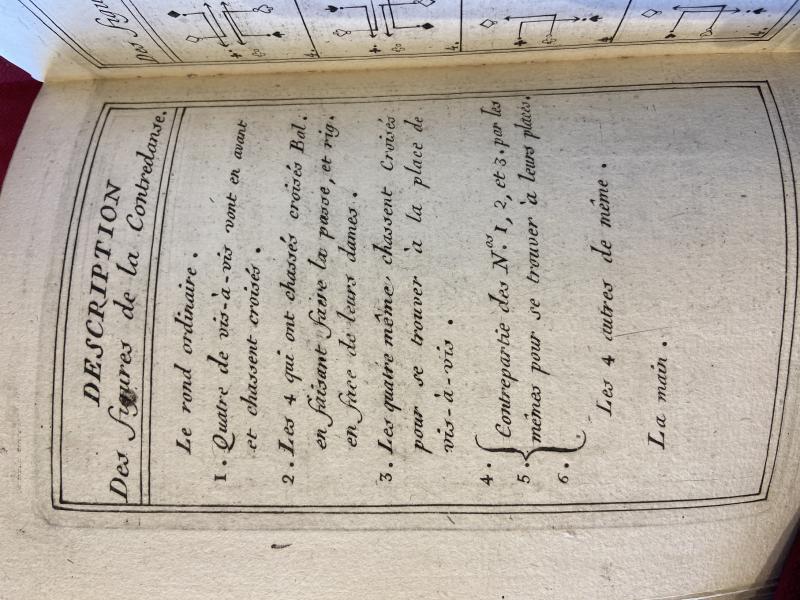 DESCRIPTION
Des figures de la Contredanse.
Le rond ordinaire.
1. Quatre de vis-à-vis vont en avant
et chassent croisés.
2. Les 4 qui ont chassés croisés Bal.
en faisant faire la passe, et rig.
en face de leurs dames.
3. Les quatre même chassent Croisés
pour se trouver à la place de
vis-à-vis.
4. Contrepartie des N.os 1, 2, et 3. par les
5. mêmes pour se trouver à leurs places.
6.
Les 4 autres de même.
La main.
Des figu
4.
4.
4.